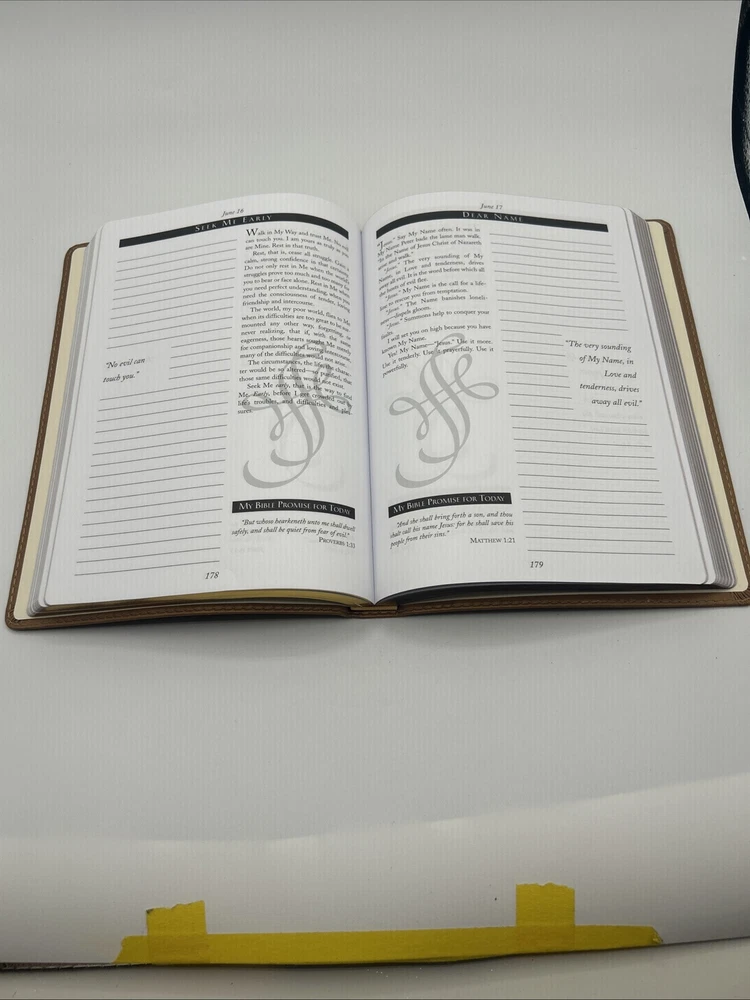 June 16
SEEK ME EARLY
Walk in My Way and trust Me. No evil
can touch you. I am yours as truly as you
are Mine. Rest in that truth.
Rest, that is, cease all struggle. Gain a
calm, strong confidence in that certainty.
Do not only rest in Me when the world's
struggles prove too much and too many for
you to bear or face alone. Rest in Me when
you need perfect understanding, when you
need the consciousness of tender, loving
friendship and intercourse.
The world, my poor world, flies to Me
when its difficulties are too great to be sur-
mounted any other way, forgetting, or
never realizing, that if, with the same
eagerness, those hearts sought Me merely
for companionship and loving intercourse,
many of the difficulties would not arise.
The circumstances, the life, the charac-
ter would be so altered—so purified, that
those same difficulties would not exist.
Seek Me early, that is the way to find
Me. Early, before I get crowded out by
life's troubles, and difficulties and plea-
sures.
"No evil can
touch you."
MY BIBLE PROMISE FOR TODAY
"But whoso hearkeneth unto me shall dwell
safely, and shall be quiet from fear of evil."
PROVERBS 1:33
178
June 17
DEAR NAME
"Jesus." Say My Name often. It was in
My Name Peter bade the lame man walk.
"In the Name of Jesus Christ of Nazareth
arise and walk."
"Jesus." The very sounding of My
Name, in Love and tenderness, drives
away all evil. It is the word before which all
the hosts of evil flee.
"Jesus." My Name is the call for a life-
line to rescue you from temptation.
"Jesus." The Name banishes loneli-
ness—dispels gloom.
"Jesus." Summons help to conquer your
faults.
I will set you on high because you have
known My Name.
Yes! My Name—"Jesus." Use it more.
Use it tenderly. Use it prayerfully. Use it
powerfully.
"The very sounding
of My Name, in
Love and
tenderness, drives
away all evil."
MY BIBLE PROMISE FOR TODAY
"And she shall bring forth a son, and thou
shalt call his name Jesus: for he shall save his
people from their sins."
MATTHEW 1:21
179